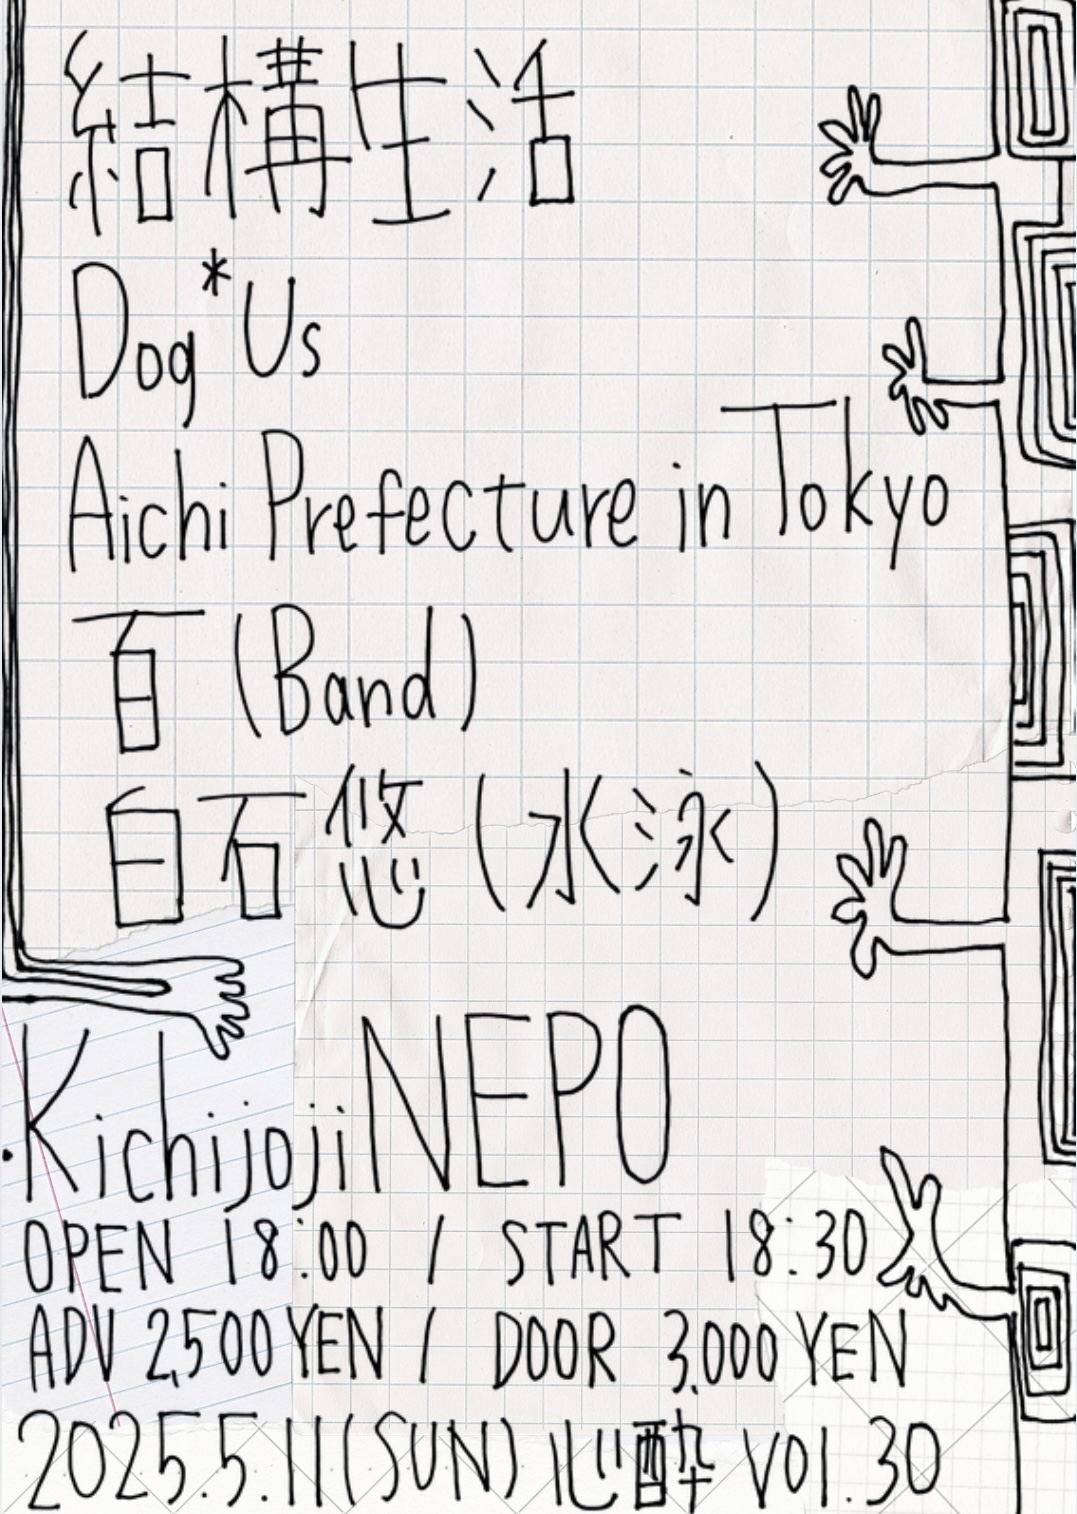 結構生活
Dog*Us
Aichi Prefecture in Tokyo
百(Band)
白石悠(水泳)
KichijojiNEPO
OPEN 18:00 / START 18:30
ADV 2,500YEN / DOOR 3,000YEN
2025.5.11(SUN)心酔 VOl.30